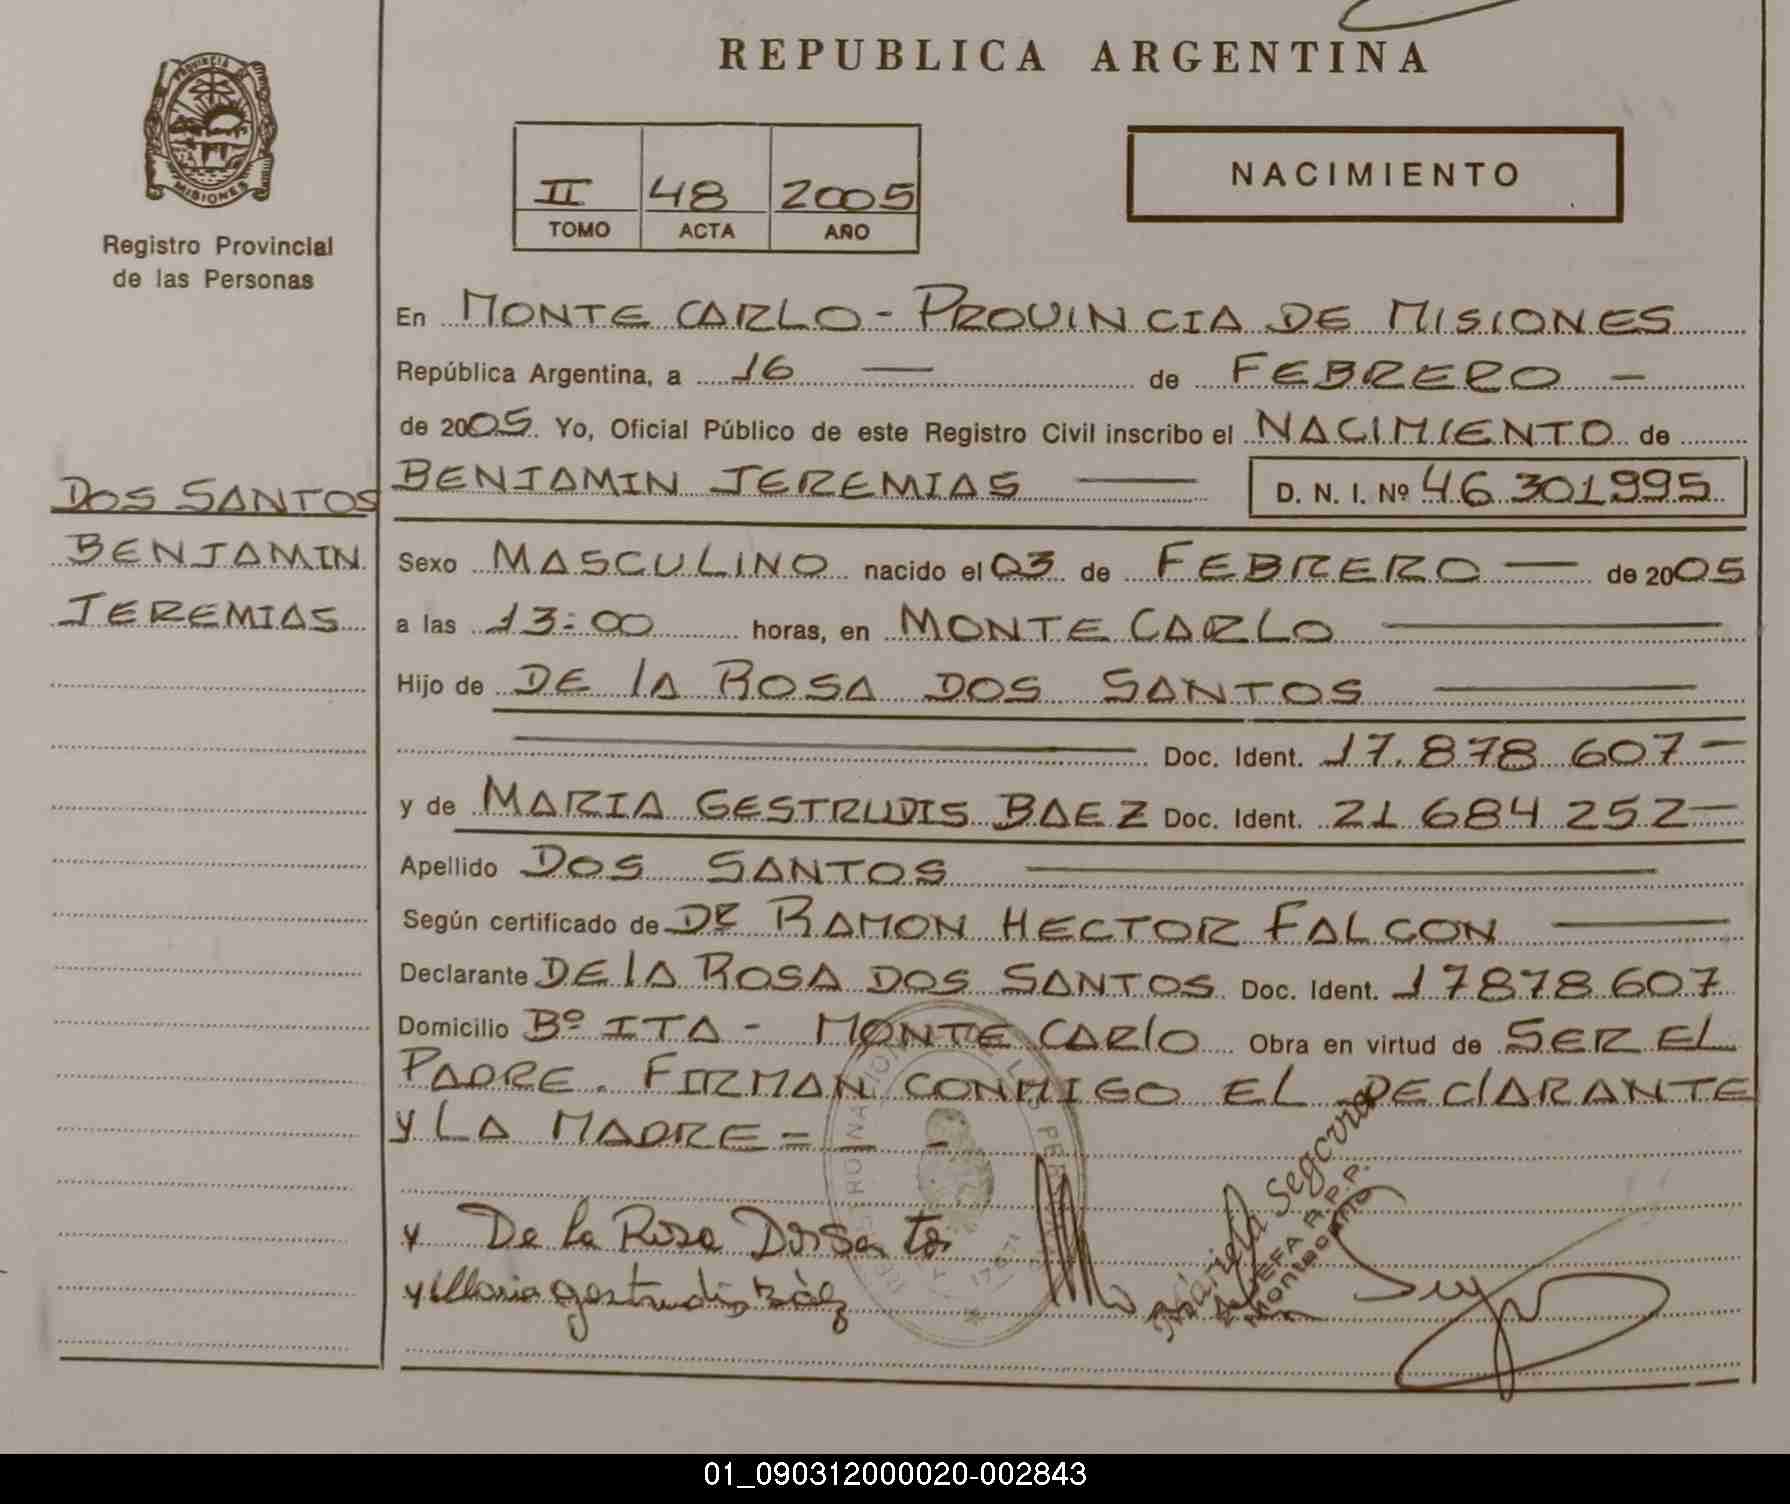 REPUBLICA ARGENTINA
PROVINCIA DE
MISIONES
Registro Provincial
de las Personas
II 48 2005
TOMO ACTA AÑO
NACIMIENTO
En MONTE CARLO - PROVINCIA DE MISIONES
República Argentina, a 16 — de FEBRERO —
de 2005. Yo, Oficial Público de este Registro Civil inscribo el NACIMIENTO de
BENJAMIN JEREMIAS — D. N. I. Nº 46.301995
DOS SANTOS
BENJAMIN
JEREMIAS
Sexo MASCULINO nacido el 03 de FEBRERO — de 2005
a las 13:00 horas, en MONTE CARLO —
Hijo de DE lA ROSA DOS SANTOS —
— Doc. Ident. 17.878.607 —
y de MARIA GESTRUDIS BAEZ Doc. Ident. 21 684 252 —
Apellido DOS SANTOS —
Según certificado de Dr RAMON HECTOR FALCON —
Declarante DE lA ROSA DOS SANTOS Doc. Ident. 17878.607
Domicilio Bº ITA - MONTE CARlO Obra en virtud de SER EL
PADRE. FIRMAN CONMIGO EL DEClARANTE
y LA MADRE = - -
y De la Rosa Dos Santos
y Maria gestrudis Báez
Mariela Segovia
JEFA R.P.P.
Montecarlo
01_090312000020-002843